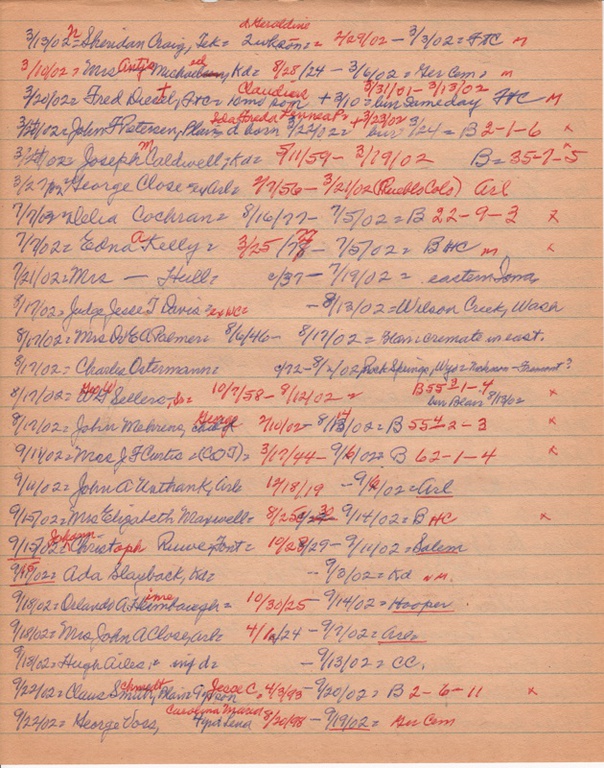 d Geraldine
3/13/02 = n Sheridan Craig, Tek = = 2/29/02 - 3/3/02 = FTC m
3/10/02 = Mrs Antje Michaelsen, Kd = 8/28/24 - 3/6/02 = Ger Cem = m
Claudius 3/31/01 - 3/13/02
3/20/02 = Fred Diesel, + 3/10 = bur same day FTC m
+ 3/23/02
John F Petersen, Blair, d born 3/22/02 bur 3/24 = B 2-1-6 x
Joseph m Caldwell, Kd = 5/11/59 - 3/19/02 B = 35-7-5 x
3/27/02 George Close = exArl = 2/7/56 - 3/21/02 (Pueblo Colo) Arl
7/7/02 = Delia Cochran = 8/16/77 - 7/5/02 = B 22-9-3 x
7/7/02 = Edna a Kelly = 3/25/78 77 - 7/5/02 = B HC m x
7/21/02 = Mrs — Hull = c/37 - 7/19/02 = eastern Iowa
8/17/02 = Judge Jesse T Davis = exWC - 8/13/02 = Wilson Creek, Wash
8/17/02 = Mrs O E A Palmer = 8/6/46 - 8/17/02 = cremate in east.
8/17/02 = Charlie Ostermann = c/72 - Rock Springs, Wyo = - Fremont?
8/17/02 = Sellers, Sr = 10/7/58 - 8/12/02 = B 55 3-1-4
bur Blair 8/13/02 x
8/17/02 = John Mehrens, George 2/10/02 - B 55 4-2-3 x
9/11/02 = Mrs J F Curtis = (COT) = 3/17/44 - 9/6/02 = B 62-1-4 x
9/11/02 = John A Unthank, Arl 12/18/19 - 9/6/02 = Arl
9/15/02 = Mrs Elizabeth Maxwell = 8/25 - 9/14/02 = B HC x
Johann
9/15/02 = Christoph Ruwe, Font = 10/28/29 - 9/11/02 = Salem
Ada Slayback, Kd = - 9/3/02 = Kd nm
9/18/02 = Orlando A Heimbaugh = 10/30/25 - 9/14/02 = Hooper
9/18/02 = Mrs John A Close, Arl = - 9/9/02 = Arl =
9/18/02 = Hugh Ailes, inf d = - 9/13/02 = CC.
9/22/02 = Claus Schmidt Smith, Blair Jesse C. 4/3/93 - 9/20/02 = B 2-6-11 x
9/22/02 = George Voss, Carolina Maria Lena 8/20/98 - 9/19/02 = Ger Cem